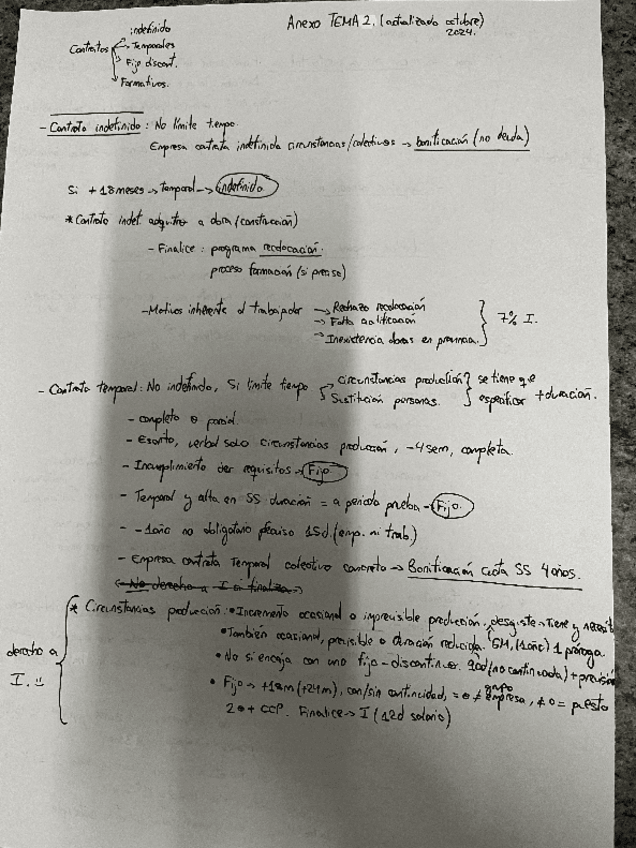 Anexo TEMA 2. (actualizado octubre) 2024.
Contratos → indefinido
→ Temporales
→ Fijo discont.
→ Formativos.
- Contrato indefinido: No límite tiempo.
Empresa contrata indefinida circunstancias/colectivos → bonificación (no deuda)
Si +18 meses → temporal → indefinido
* Contrato indef. adscrito a obra (construcción)
- Finalice: programa recolocación.
proceso formación (si preciso)
- Motivos inherente al trabajador → Rechazo recolocación
→ Falta cualificación
→ Inexistencia obras en provincia.
7% I.
- Contrato temporal: No indefinido, Si límite tiempo
circunstancias producción
Sustitución personas.
se tiene que especificar + duración.
- completo o parcial.
- Escrito, verbal solo circunstancias producción, -4 sem, completa.
- Incumplimiento der requisitos → Fijo
- Temporal y alta en SS duración = a periodo prueba → Fijo.
- -1año no obligatorio preaviso 15d (emp. ni trab.)
- Empresa contrata Temporal colectivo concreto → Bonificación cuota SS 4 años.
(No derecho a I si finaliza)
derecho a I.
* Circunstancias producción: • Incremento ocasional o imprevisible producción, desajuste → tiene y
6M, (1año) 1 prórroga.
• También ocasional, previsible o duración reducida.
• No si encaja con uno fijo-discontinuo. 90d (no continuada) + previsión
• Fijo → +18m (+24m), con/sin continuidad, = o ≠ grupo empresa, ≠ o = puesto
2 o + CCP. Finalice → I (12d salario)